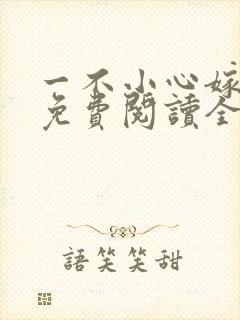 一不小心嫁
免費閱讀全
語笑笑甜